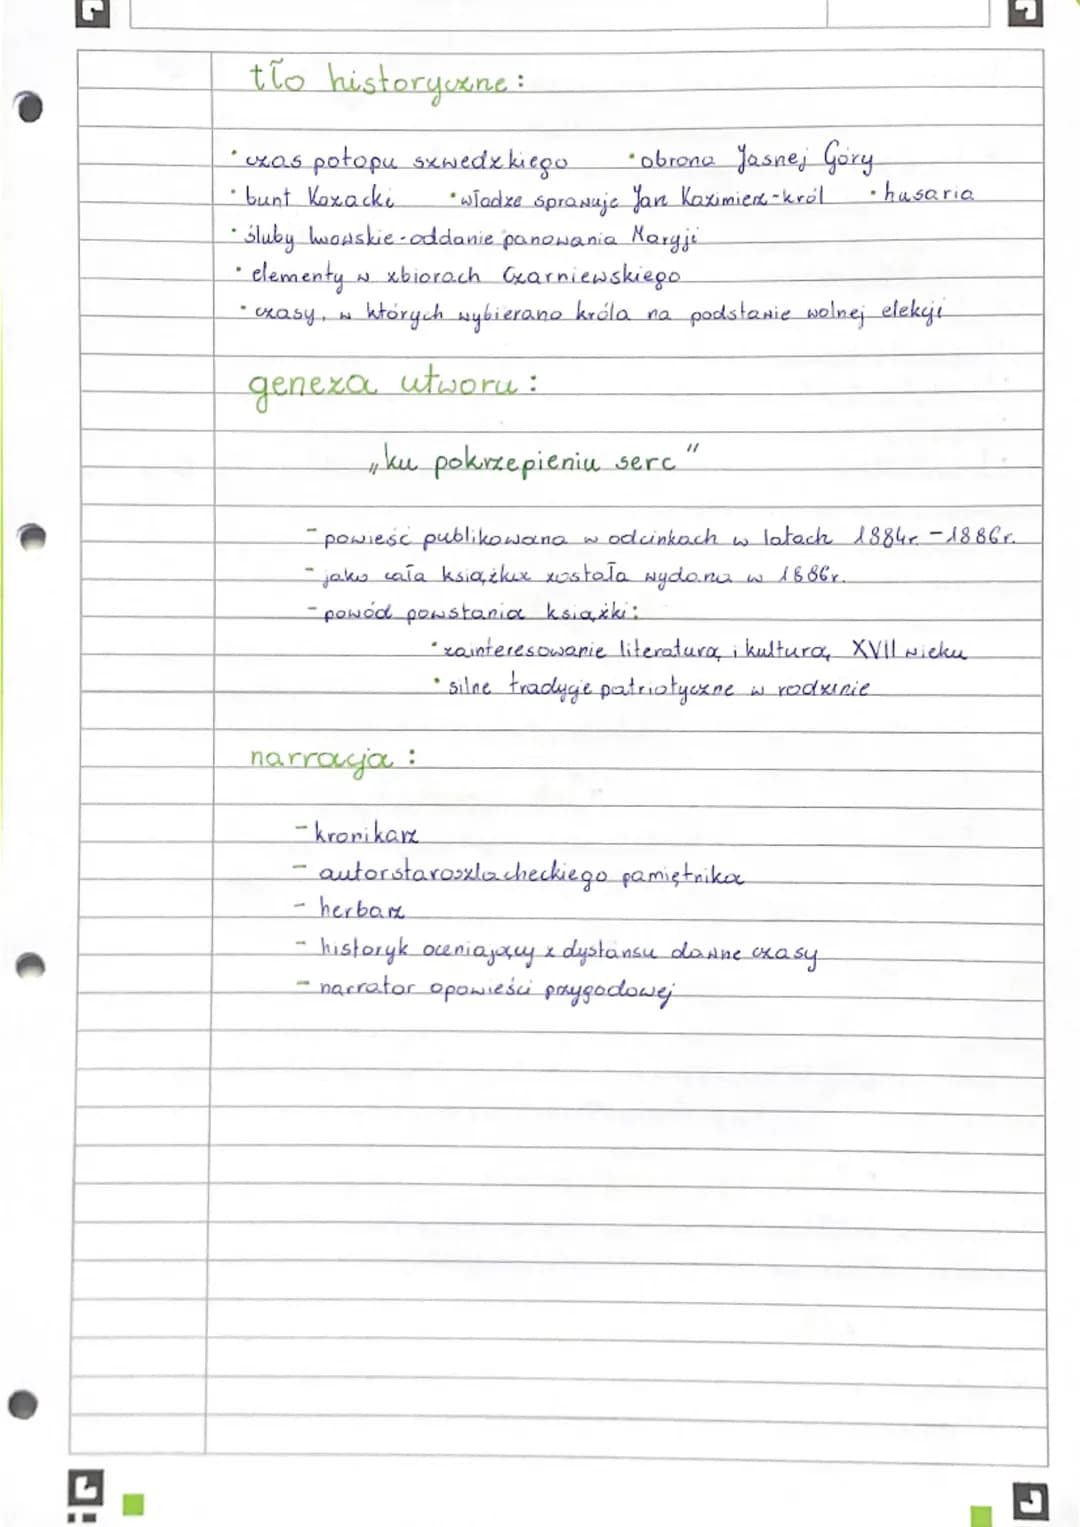 tło historyczne:
• czas potopu szwedzkiego • obrona Jasnej Góry
• bunt Kozacki • władze sprawuje Jan Kazimierz-król • husaria
• śluby lwowskie-oddanie panowania Maryji
• elementy w zbiorach Czarniewskiego
• czasy, w których wybierano króla na podstawie wolnej elekcji
geneza utworu:
„ku pokrzepieniu serc"
- powieść publikowana w odcinkach w latach 1884r. - 1886r.
- jako cała książka została wydana w 1886r.
- powód powstania książki:
• zainteresowanie literaturą i kulturą XVII wieku
• silne tradycje patriotyczne w rodzinie
narracja:
- kronikarz
- autor staroszlacheckiego pamiętnika
- herbarz
- historyk oceniający z dystansu dawne czasy
- narrator opowieści przygodowej